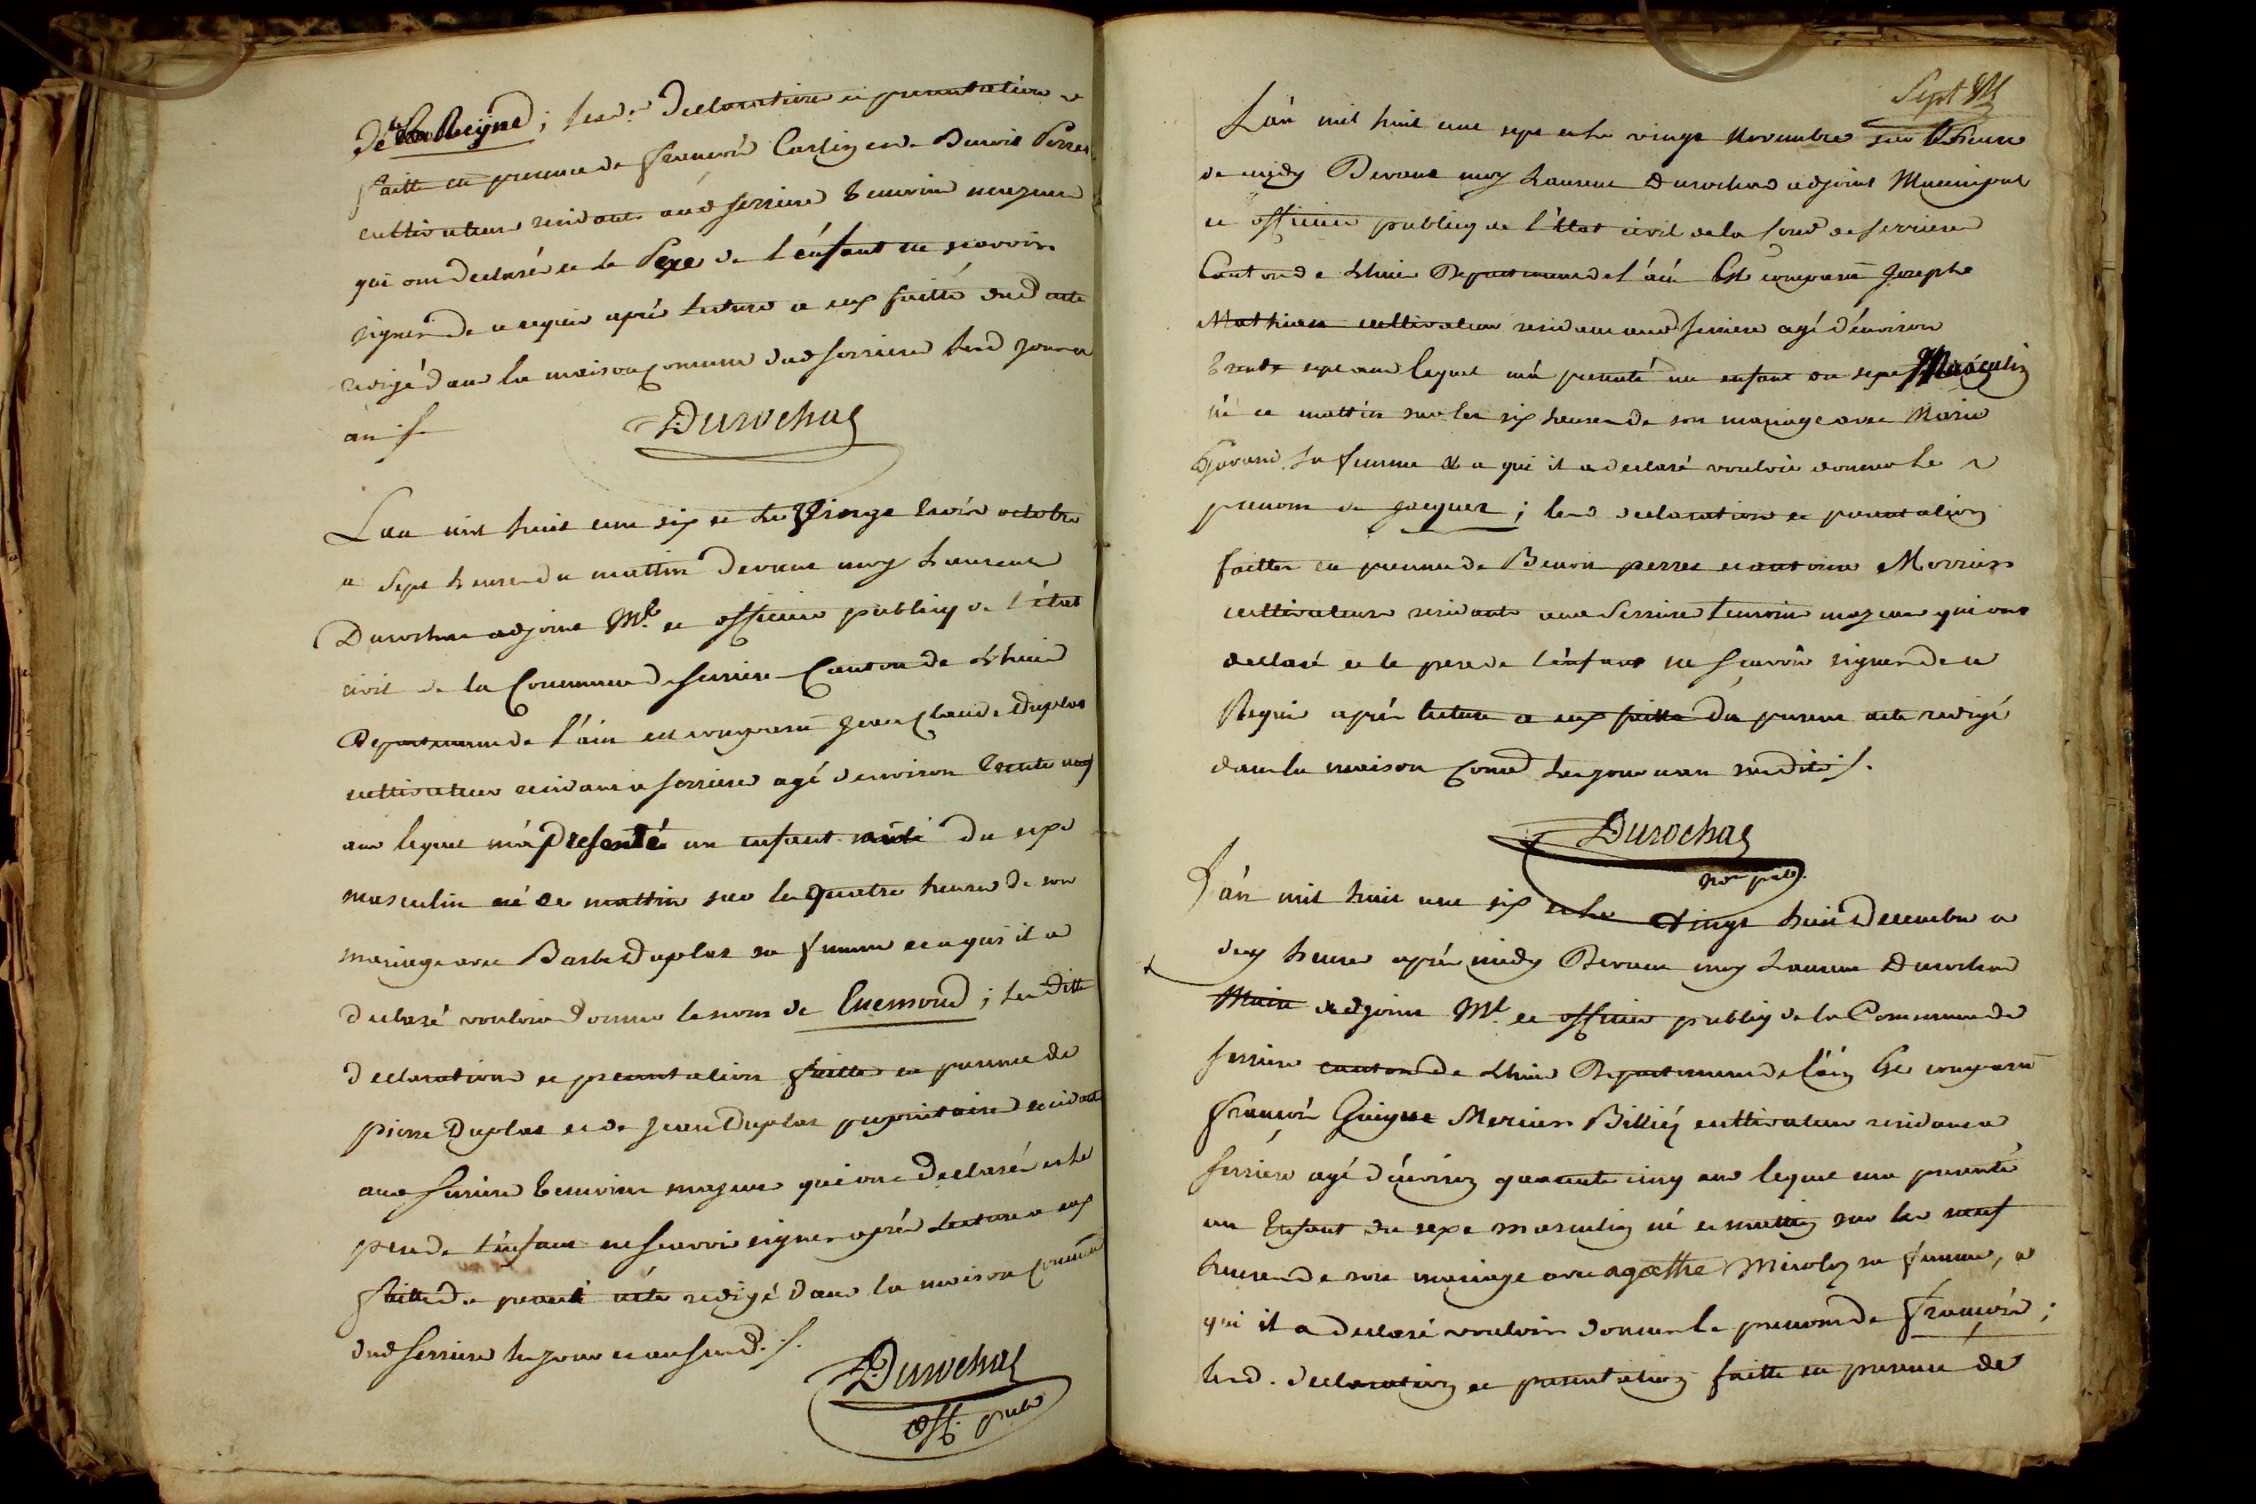 de La Reyne; lesd. declaration et presentation
faitte en presence de françois Carlin et de Benoit Perret
cultivateurs residants aud serriere temoins majeurs
qui ont declarés et le Pere de l'enfant ne scavoir
signer de ce requis après lecture a eux faitte dud acte
redigé dans la maison comune dud serriere lesd jour et
an ./.
Durochas
L'an mil huit cent six et le vingt trois octobre
a sept heures du mattin devant moy Laurent
Durochas adjoint Mal. et officier publicq de l'état
civil de la Commune de serriere Canton de Lhuis
Departement de l'ain est comparu Jean Claude Duplas
cultivateur residant a serriere agé d'environ trente
ans lequel m'a presenté un enfant du sexe
masculin né ce mattin sur les quatre heures de son
mariage avec Barbe Duplas sa femme et a qui il a
declaré vouloir donner le nom de Enemond; les ditte
declaration et presentation faittes en presence de
pierre Duplas et de Jean Duplas proprietaires residants
aud serriere temoins majeurs qui ont declarés et le
pere de l'enfant ne scavoir signer après lecture a eux
faitte du present acte redigé dans la maison comune
dud serriere les jour et an susd. ./.
Durochas
off. pub
Sept
L'an mil huit cent sept et le vingt Novembre sur l'heure
de midy Devant moy Laurent Durochas adjoint Municipal
et officier publicq de l'état civil de la Com de serriere
Canton de Lhuis Departement de l'ain Est comparu Joseph
Mathieu cultivateur residant aud serriere agé d'environ
trente sept ans lequel m'a presenté un enfant du sexe Masculin
né ce mattin sur les six heures de son mariage avec Marie
sa femme & a qui il a declaré vouloir donner le
prenom de Jacques; lesd declaration et presentation
faittes en presence de Benoit perret et antoine Morrier
cultivateurs residants aud Serriere temoins majeurs qui ont
declaré et le pere de l'enfant ne scavoir signer de ce
Requis après lecture a eux faitte du present acte redigé
dans la maison comd les jour et an susdits ./.
Durochas
L'an mil huit cent six et le vingt huit Decembre a
deux heures après midy Devant moy Laurent Durochas
Maire adjoint Mal et officier publicq de la Commune de
serriere canton de Lhuis Departement de l'ain Est comparu
françois Guigue Mercier Billiez cultivateur residant a
serriere agé d'environ quarante cinq ans lequel m'a presenté
un Enfant du sexe masculin né ce mattin sur les neuf
heures de son mariage avec agathe Miroloz sa femme, a
qui il a declaré vouloir donner le prenom de françois;
lesd. declaration et presentation faitte en presence de